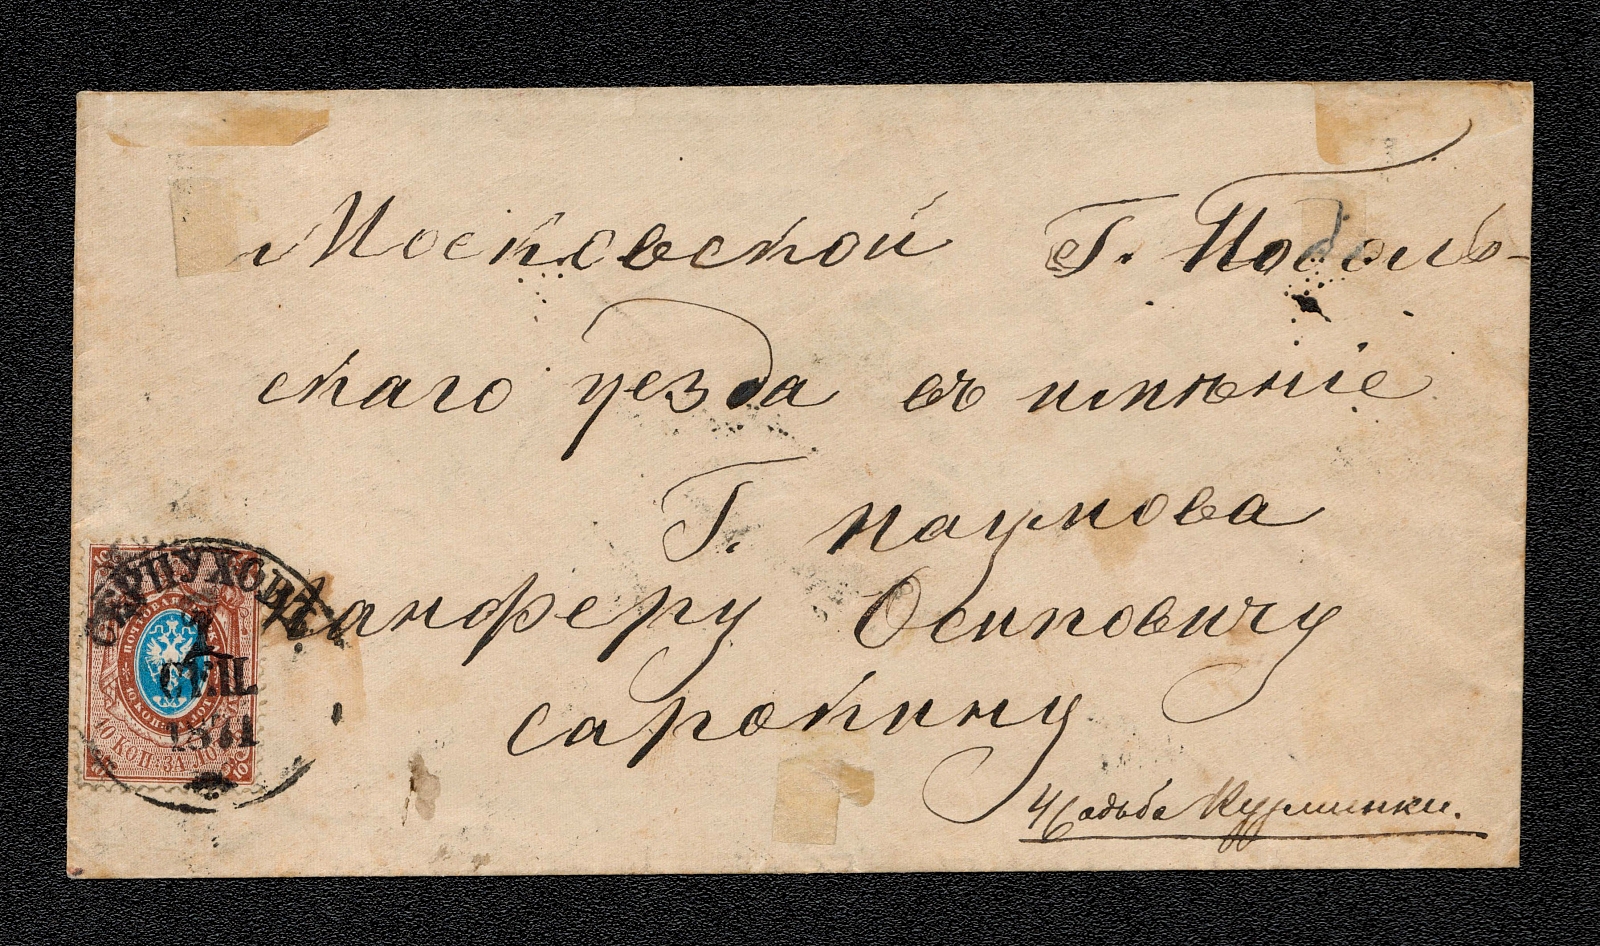 Московской Г. Подоль-
скаго уезда въ имѣніе
Г. наумова
Панферу Осиповичу
сарокину
Усадьба Курминки.
СЕРПУХОВЪ
1
СЕП.
1871
ПОЧТОВАЯ МАРКА
10 КОП. ЗА ЛОТЪ
10 КОП. ЗА ЛО